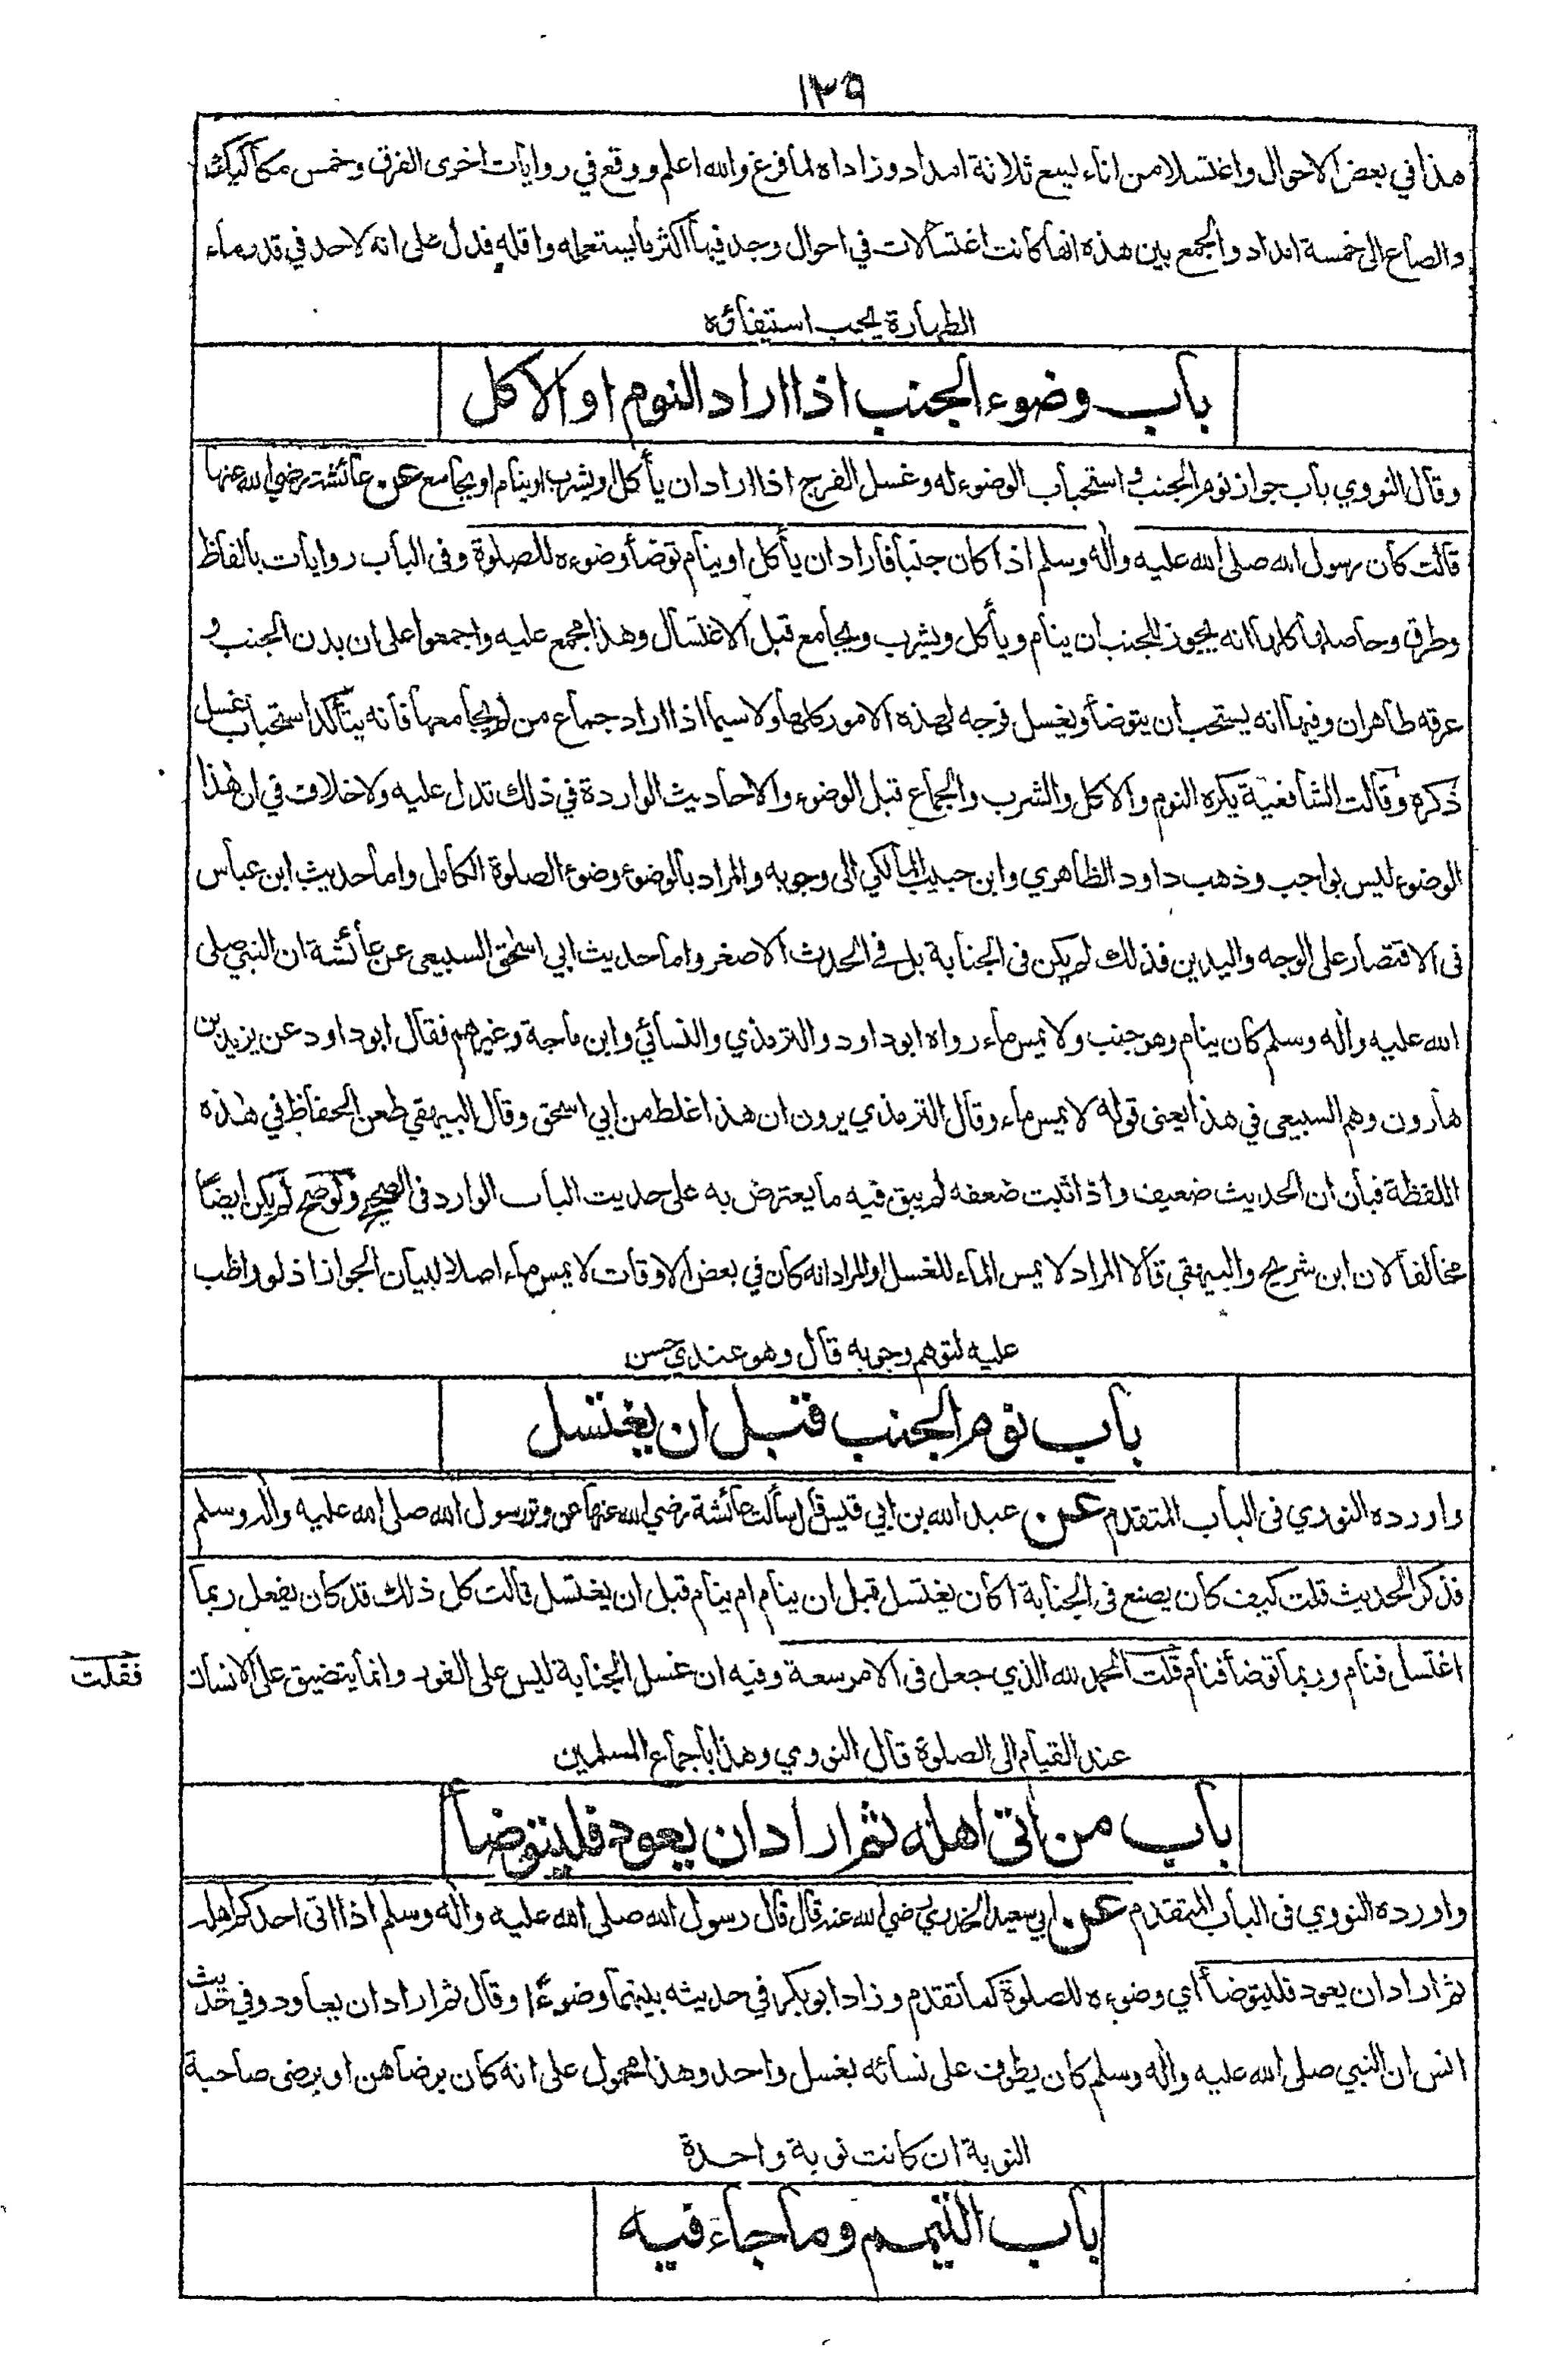 ١٢٩
هذا في بعض الاحوال واغتسلا من اناء ليسع ثلاثة امداد وزاداه لما فرغ والله اعلم ووقع في روايات اخرى الفرق وخمس مكاكيك
والصاع الى خمسة امداد والجمع بين هذه انها كانت اغتسالات في احوال وجد فيها اكثر ما يستعمله واقله فدل على انه لاحد في قدر ماء
الطهارة يجب استيفاؤه
باب وضوء الجنب اذا اراد النوم او الاكل
وقال النووي باب جواز نوم الجنب واستحباب الوضوء له وغسل الفرج اذا اراد ان يأكل او يشرب او ينام او يجامع عن عائشة رضي الله عنها
قالت كان رسول الله صلى الله عليه واٰله وسلم اذا كان جنبا فاراد ان يأكل او ينام توضأ وضوءه للصلوة وفى الباب روايات بالفاظ
وطرق وحاصلها كلها انه يجوز للجنب ان ينام ويأكل ويشرب ويجامع قبل الاغتسال وهذا مجمع عليه واجمعوا على ان بدن الجنب و
عرقه طاهران وفيها انه يستحب ان يتوضأ ويغسل فرجه لهذه الامور كلها ولاسيما اذا اراد جماع من لم يجامعها فانه يتأكد استحباب غسل
ذكره وقالت الشافعية يكره النوم والاكل والشرب والجماع قبل الوضوء والاحاديث الواردة في ذلك تدل عليه ولاخلاف في ان هٰذا
الوضوء ليس بواجب وذهب داود الظاهري وابن حبيب المالكي الى وجوبه والمراد بالوضوء وضوء الصلوة الكامل واما حديث ابن عباس
فى الاقتصار على الوجه واليدين فذلك لم يكن فى الجنابة بل في الحدث الاصغر واما حديث ابي اسحٰق السبيعى عن عائشة ان النبي صلى
الله عليه واٰله وسلم كان ينام وهو جنب ولا يمس ماء رواه ابو داود والترمذي والنسائي وابن ماجة وغيرهم فقال ابو داود عن يزيد بن
هارون وهم السبيعى في هذا يعنى قوله لا يمس ماء وقال الترمذي يرون ان هذا غلط من ابي اسحق وقال البيهقي طعن الحفاظ في هٰذه
اللفظة فبان ان الحديث ضعيف واذا ثبت ضعفه لم يبق فيه ما يعترض به على حديث الباب الوارد فى الصحيح ولو صح لم يكن ايضاً
مخالفا لان ابن شريح والبيهقي قالا المراد لا يمس الماء للغسل او المراد انه كان في بعض الاوقات لا يمس ماء اصلا لبيان الجواز اذ لو واظب
عليه لتوهم وجوبه قال وهو عندي حسن
باب نوم الجنب قبل ان يغتسل
واورده النووي فى الباب المتقدم عن عبد الله بن ابي قيس قال سألت عائشة رضي الله عنها عن وتر رسول الله صلى الله عليه واٰله وسلم
فذكر الحديث قلت كيف كان يصنع فى الجنابة اكان يغتسل قبل ان ينام ام ينام قبل ان يغتسل قالت كل ذلك قد كان يفعل ربما
اغتسل فنام وربما توضأ فنام قلت الحمد لله الذي جعل فى الامر سعة وفيه ان غسل الجنابة ليس على الفور وانما يتضيق على الانسان
فقلت
عند القيام الى الصلوة قال النووي وهذا باجماع المسلمين
باب من اتى اهله ثم اراد ان يعود فليتوضأ
واورده النووي فى الباب المتقدم عن ابي سعيد الخدري رضي الله عنه قال قال رسول الله صلى الله عليه واٰله وسلم اذا اتى احدكم اهله
ثم اراد ان يعود فليتوضأ اي وضوءه للصلوة كما تقدم وزاد ابو بكر في حديثه بينهما وضوءًا وقال ثم اراد ان يعاود وفي حديث
انس ان النبي صلى الله عليه واٰله وسلم كان يطوف على نسائه بغسل واحد وهذا محمول على انه كان برضاهن او برضى صاحبة
النوبة ان كانت نوبة واحدة
باب التيمم وما جاء فيه